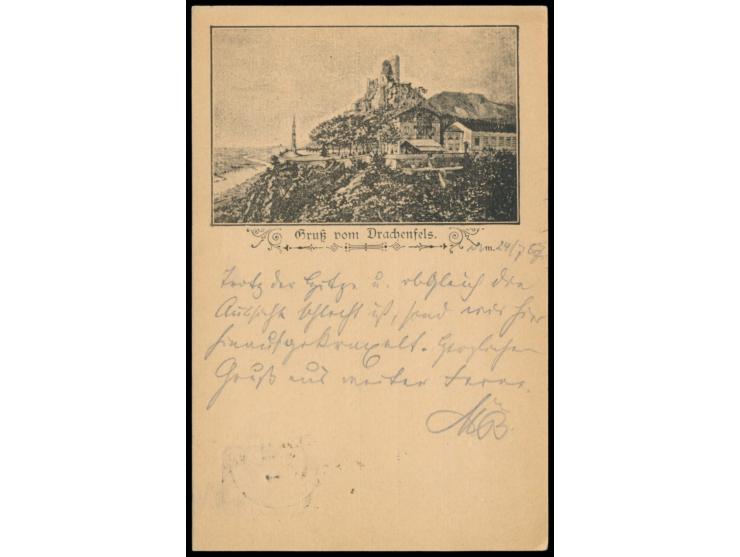 Gruß vom Drachenfels.
m. 24/7
Trotz der Hitze u. obgleich die
Aussicht schlecht ist, sind wir hier
hinaufgekraxelt. Herzlichen
Gruß aus weiter Ferne.
MB.